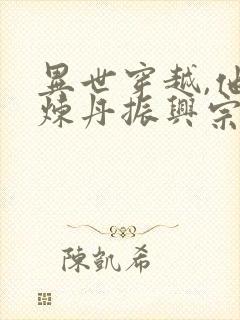 異世穿越,他
煉丹振興宗
陳凱希